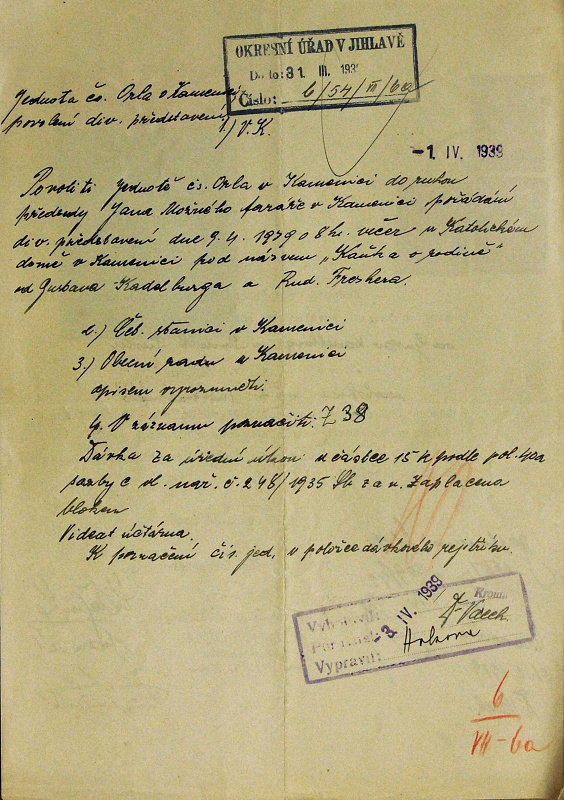 OKRESNÍ ÚŘAD V JIHLAVĚ
Došlo: 31. III. 1939
Číslo: 6/54/III/6a
Jednota čs. Orla v Kamenici,
povolení div. představení
1.) V. K.
-1. IV. 1939
Povoliti jednotě čs. Orla v Kamenici do rukou
předsedy Jana Možného faráře v Kamenici pořádání
div. představení dne 9.4. 1939 o 8 h. večer v Katolickém
domě v Kamenici pod názvem „Kaňka o rodině"
od Gustava Kadelburga a Rud.
2.) Čet. stanici v Kamenici
3.) Obecní radu v Kamenici
opisem vyrozuměti.
4. V záznamu poznačiti: Z 38
Dávka za úřední úkon v částce 15 K podle pol.
sazby C vl. nař. č. 248/1935 Sb. z. a n. zaplacena
blokem
Videat účtárna.
K poznačení čís. jed. v položce dávkového rejstříku.
-3. IV. 1939
Vypravil:
6
VII-6a